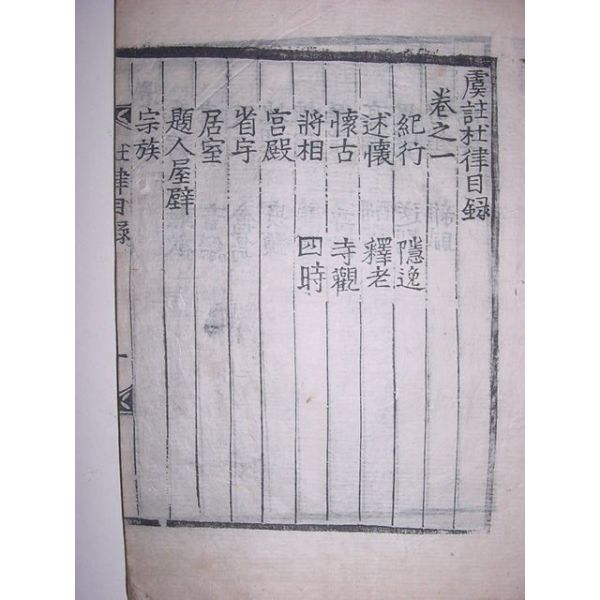 虞註杜律目録
卷之一
紀行 隱逸
述懷 釋老
懷古 寺觀
將相 四時
宫殿
省宇
居室
題人屋壁
宗族
杜律目録 一